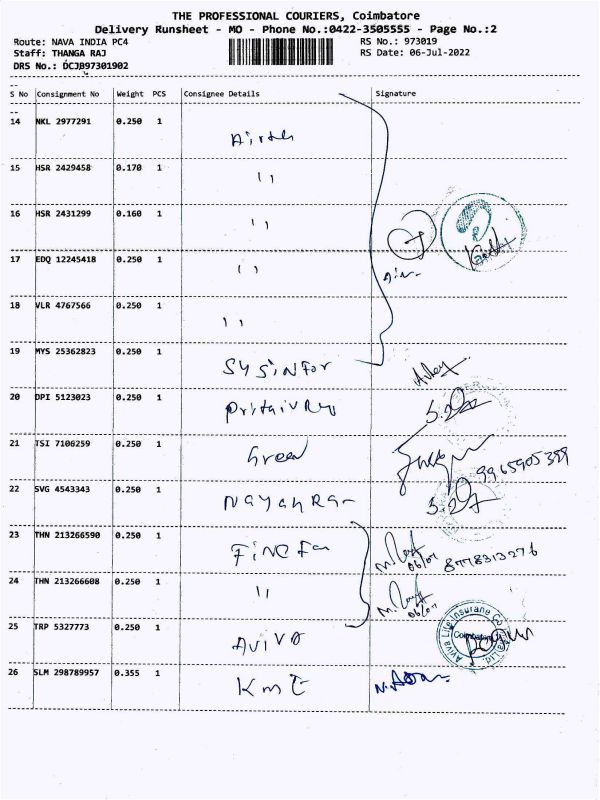 THE PROFESSIONAL COURIERS, Coimbatore
Delivery Runsheet - MO - Phone No.:0422-3505555 - Page No.:2
Route: NAVA INDIA PC4 RS No.: 973019
Staff: THANGA RAJ RS Date: 06-Jul-2022
DRS No.: DCJB97301902
--
S No Consignment No Weight PCS Consignee Details Signature
--
14 NKL 2977291 0.250 1
Airtel
15 HSR 2429458 0.170 1
"
16 HSR 2431299 0.160 1
"
17 EDQ 12245418 0.250 1
"
18 VLR 4767566 0.250 1
"
19 MYS 25362823 0.250 1
SYSiNFor
20 DPI 5123023 0.250 1
21 TSI 7106259 0.250 1
Green 9965905399
22 SVG 4543343 0.250 1
23 THN 213266590 0.250 1
06/07 8778313276
24 THN 213266608 0.250 1
" 06/07
25 TRP 5327773 0.250 1
AVIVA Aviva Life Insurance Co Coimbatore
26 SLM 298789957 0.355 1